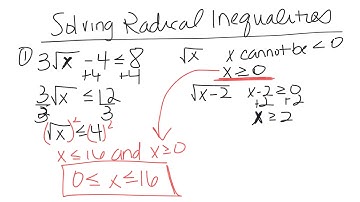 Solving Radical Inequalities
① 3√x - 4 ≤ 8
+4 +4
3√x ≤ 12
3 3
(√x)² ≤ (4)²
x ≤ 16 and x ≥ 0
0 ≤ x ≤ 16
√x x cannot be < 0
x ≥ 0
√x-2 x-2 ≥ 0
+2 +2
x ≥ 2